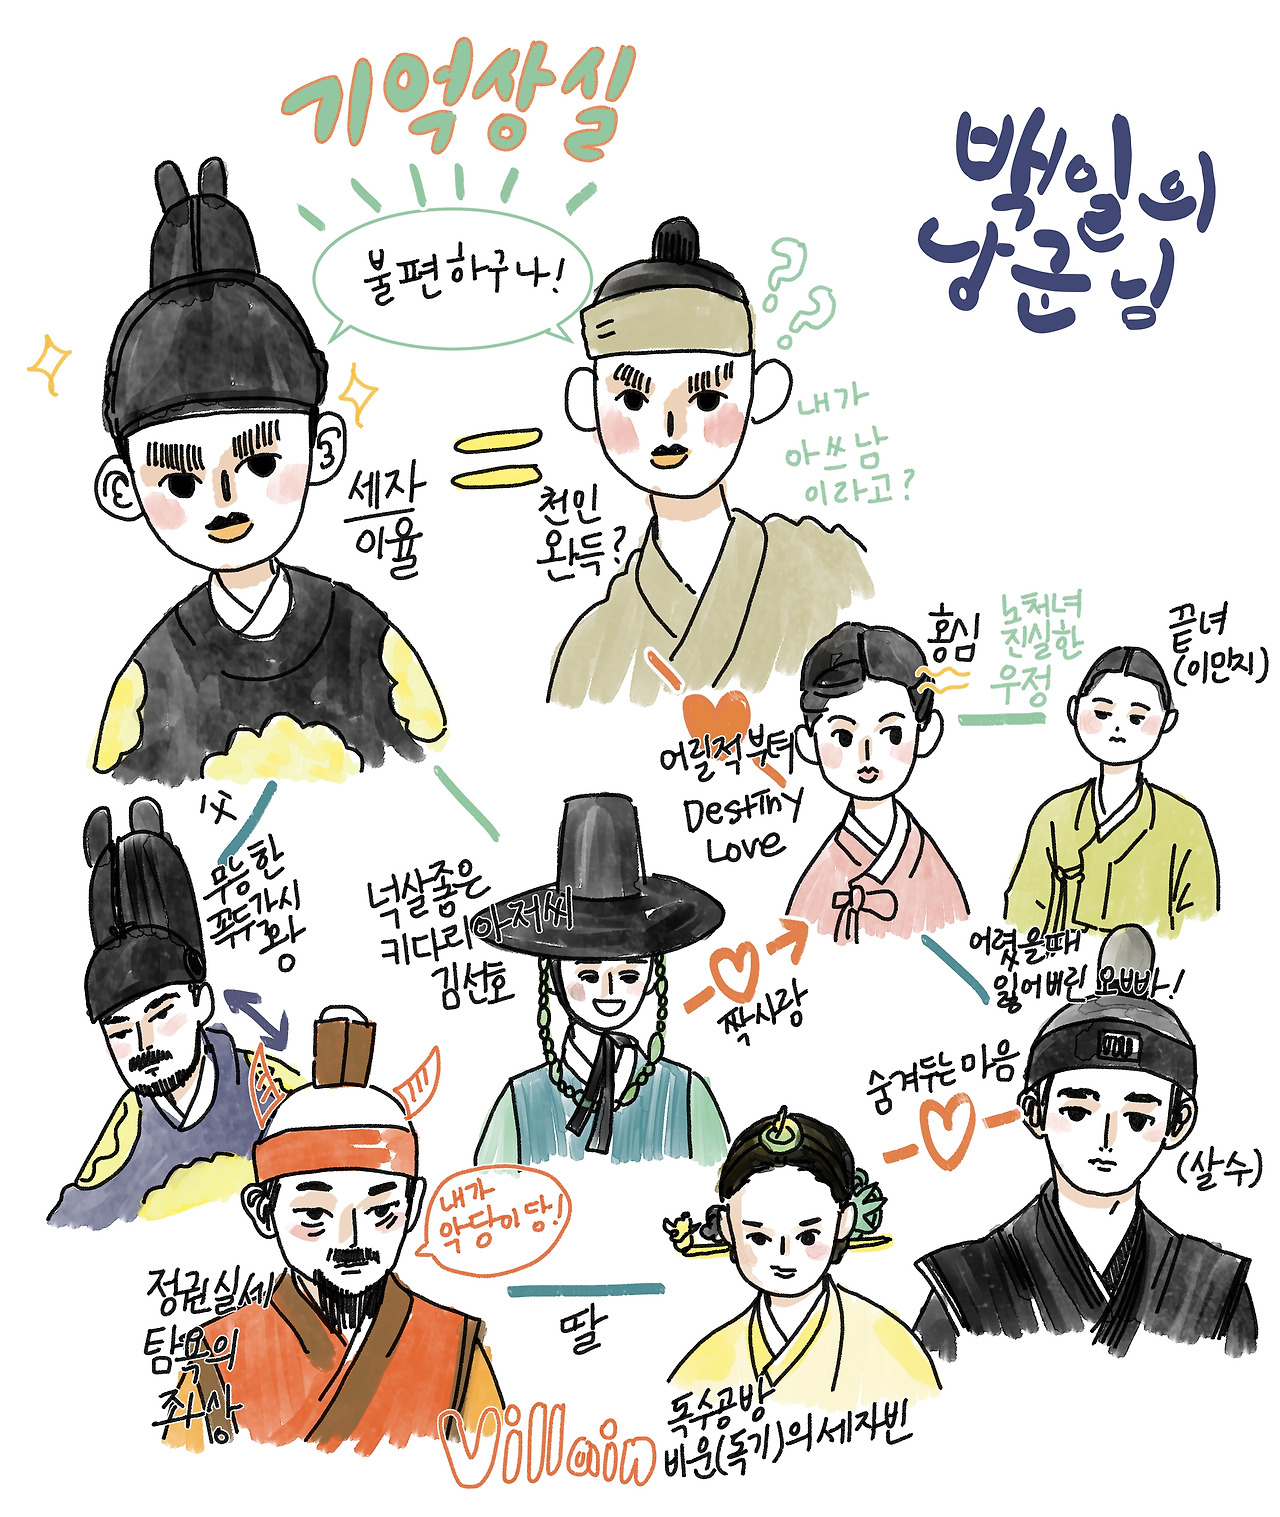 기억상실
백일의
낭군님
불편하구나!
??
내가
아쓰남
이라고?
세자
이율
천인
완득?
홍심
노처녀
진실한
우정
끝녀
(이민지)
어릴적 부터
Destiny
Love
父
무능한
꼭두각시
황
넉살좋은
키다리아저씨
김선호
짝사랑
어렸을때
잃어버린 오빠!
숨겨두는 마음
(살수)
내가
악당이당!
정권실세
탐욕의
좌상
딸
Villain
독수공방
비운(독기)의 세자빈